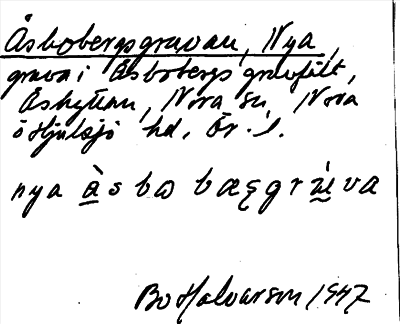 Åsbobergsgruvan, Nya,
gruva i Åsbobergs gruvfält,
Åshyttan, Nora sn, Nora
o Hjulsjö hd, Ör. l.
nya å s b ω b æ ȩ g r v a
Bo Halvarson 1947